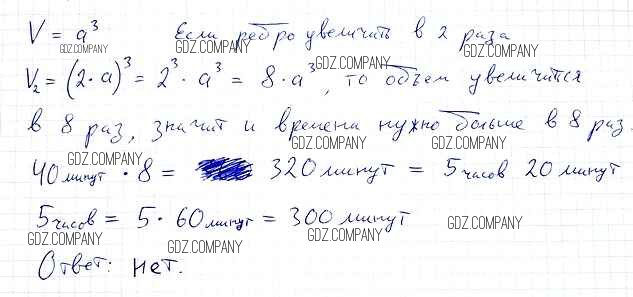 V = a³ Если ребро увеличить в 2 раза
GDZ.COMPANY GDZ.COMPANY GDZ.COMPANY
V₂ = (2·a)³ = 2³ · a³ = 8·a³, то объем увеличится
GDZ.COMPANY GDZ.COMPANY
в 8 раз, значит и времени нужно больше в 8 раз.
GDZ.COMPANY GDZ.COMPANY GDZ.COMPANY
40 минут · 8 = 320 минут = 5 часов 20 минут
5 часов = 5 · 60 минут = 300 минут
GDZ.COMPANY GDZ.COMPANY GDZ.COMPANY GDZ.COMPANY
Ответ: нет.